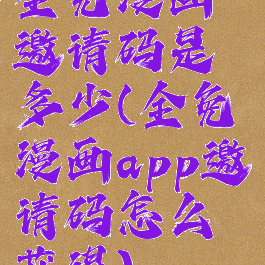 全免漫画
邀请码是
多少(全免
漫画app邀
请码怎么
获得)